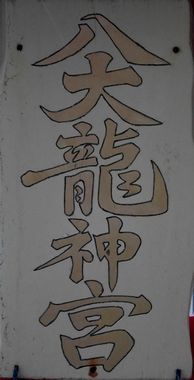 八大龍神宮